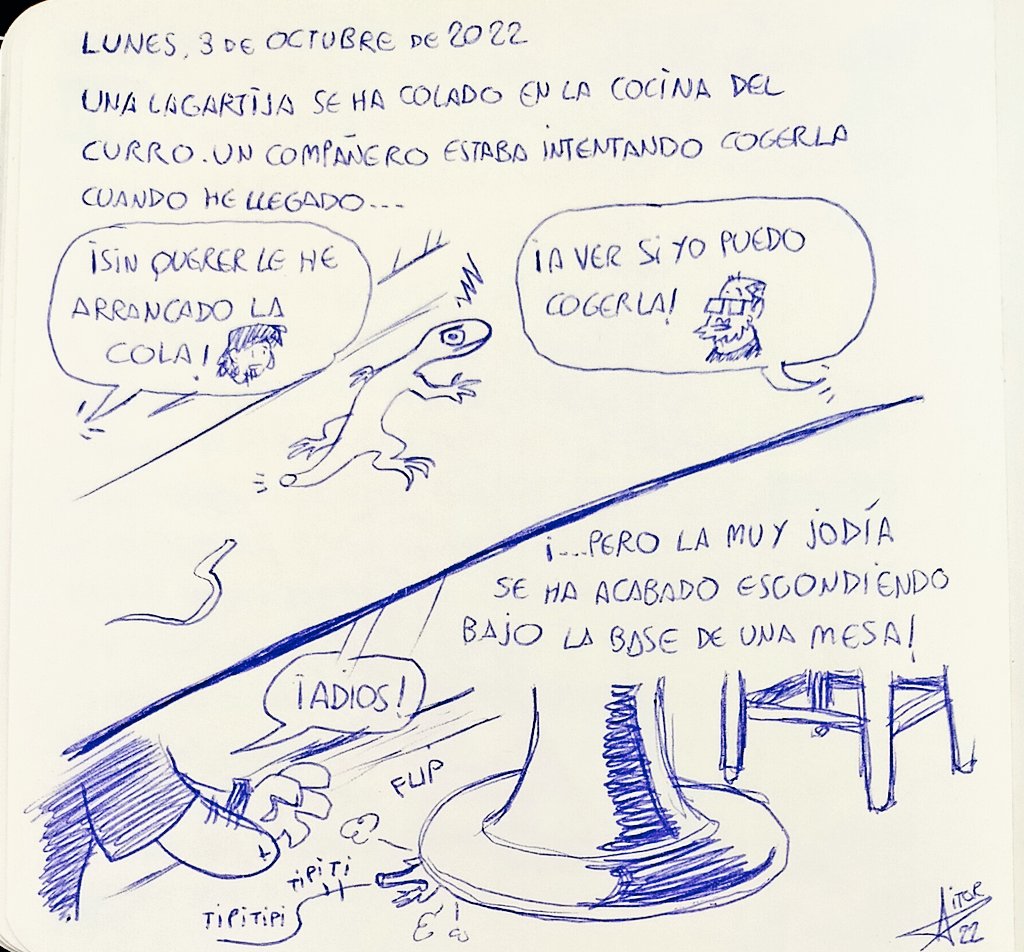 LUNES, 3 DE OCTUBRE DE 2022
UNA LAGARTIJA SE HA COLADO EN LA COCINA DEL
CURRO. UN COMPAÑERO ESTABA INTENTANDO COGERLA
CUANDO HE LLEGADO...
¡SIN QUERER LE HE
ARRANCADO LA
COLA!
¡A VER SI YO PUEDO
COGERLA!
¡...PERO LA MUY JODÍA
SE HA ACABADO ESCONDIENDO
BAJO LA BASE DE UNA MESA!
¡ADIOS!
FLIP
TIPITI
TIPITIPI
AITOR
22